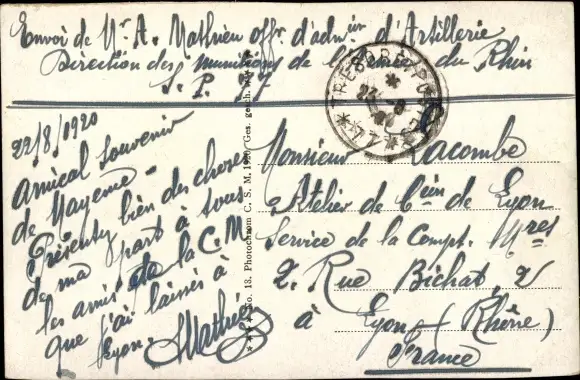 Envoi de Mr A. Mathieu offr d'admon d'Artillerie
Direction des munitions de l'Armée du Rhin
S. P. 77
TRESOR ET POSTES
* 77 *
22/8/1920
Amical souvenir
de Mayence -
Présentez bien des choses
de ma part à tous
les amis de la C.M.
que j'ai laissés à
Lyon.
Mathieu
No. 18. Photochrom C. S. M. 1920 Ges. gesch.
Monsieur Lacombe
Atelier de Con de Lyon
Service de la Compt. Mres
2. Rue Bichat, 2
à Lyon - (Rhône)
France